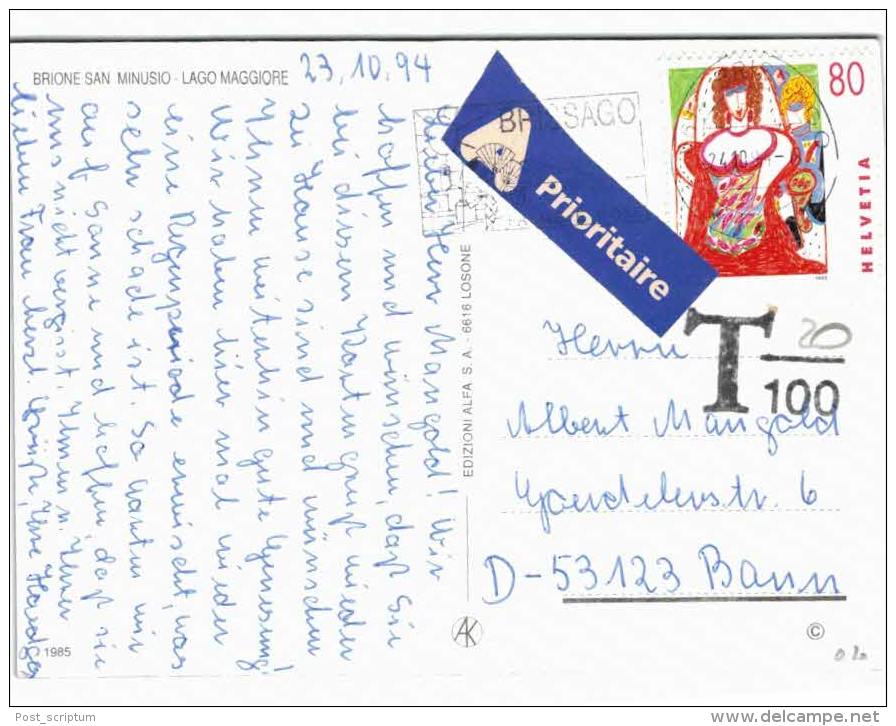 BRIONE SAN MINUSIO - LAGO MAGGIORE
23.10.94
Lieber Herr Mangold! Wir
hoffen und wünschen, daß Sie
bei diesem Kartengruß wieder
zu Hause sind und wünschen
Ihnen weiterhin gute Genesung!
Wir haben hier mal wieder
eine Regenperiode erwischt, was
sehr schade ist. So warten wir
auf Sonne und hoffen, daß sie
uns nicht vergisst. Ihnen u. Ihrer
lieben Frau herzl. Grüße, Ihre
EDIZIONI ALFA S. A. - 6616 LOSONE
1985
BRISSAGO
Prioritaire
80
HELVETIA
24.10
T 20
100
Herrn
Albert Mangold
Goerdelerstr. 6
D-53123 Bonn
AK
©
Post_scriptum
www.delcampe.net